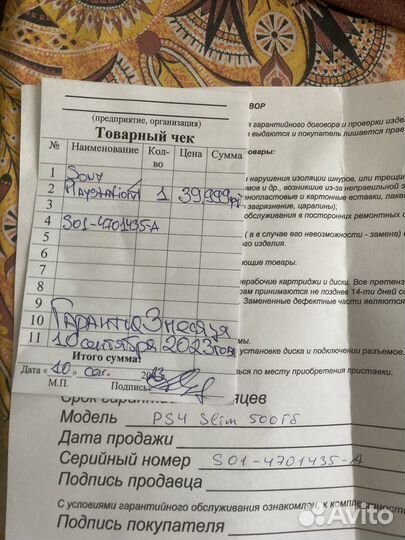 (предприятие, организация)
Товарный чек
№ Наименование Кол-во Цена Сумма
1 Sony
2 Playstation 1 39999
3
4 S01-4701435-A
5
6
7
8
9
10 Гарантия 3 месяца
11 10 сентября 2023 года
Итого сумма:
Дата «10» сен. 2023
М.П. Подпись
ВОР
гарантийного договора и проверки изде
выдаются и покупатель лишается прав
товары:
нарушения изоляции шнуров, или трещин
возникшие из-за неправильной э
пластовые и картонные вставки, пакет
загрязнение, царапины);
обслуживания в посторонних ремонтных с
( а в случае его невозможности - замена)
ого изделия.
ющие товары.
ерабочие картриджи и диски. Все претенз
рам принимаются не позднее 14-ти дней со
Замененные дефектные части являются
установке диска и подключении разъемов.
ься по месту приобретения приставки.
Срок сяцев
Модель PS4 Slim 500Гб
Дата продажи
Серийный номер S01-4701435-A
Подпись продавца
С условиями гарантийного обслуживания ознакомлен, к комплектности
Подпись покупателя
Avito